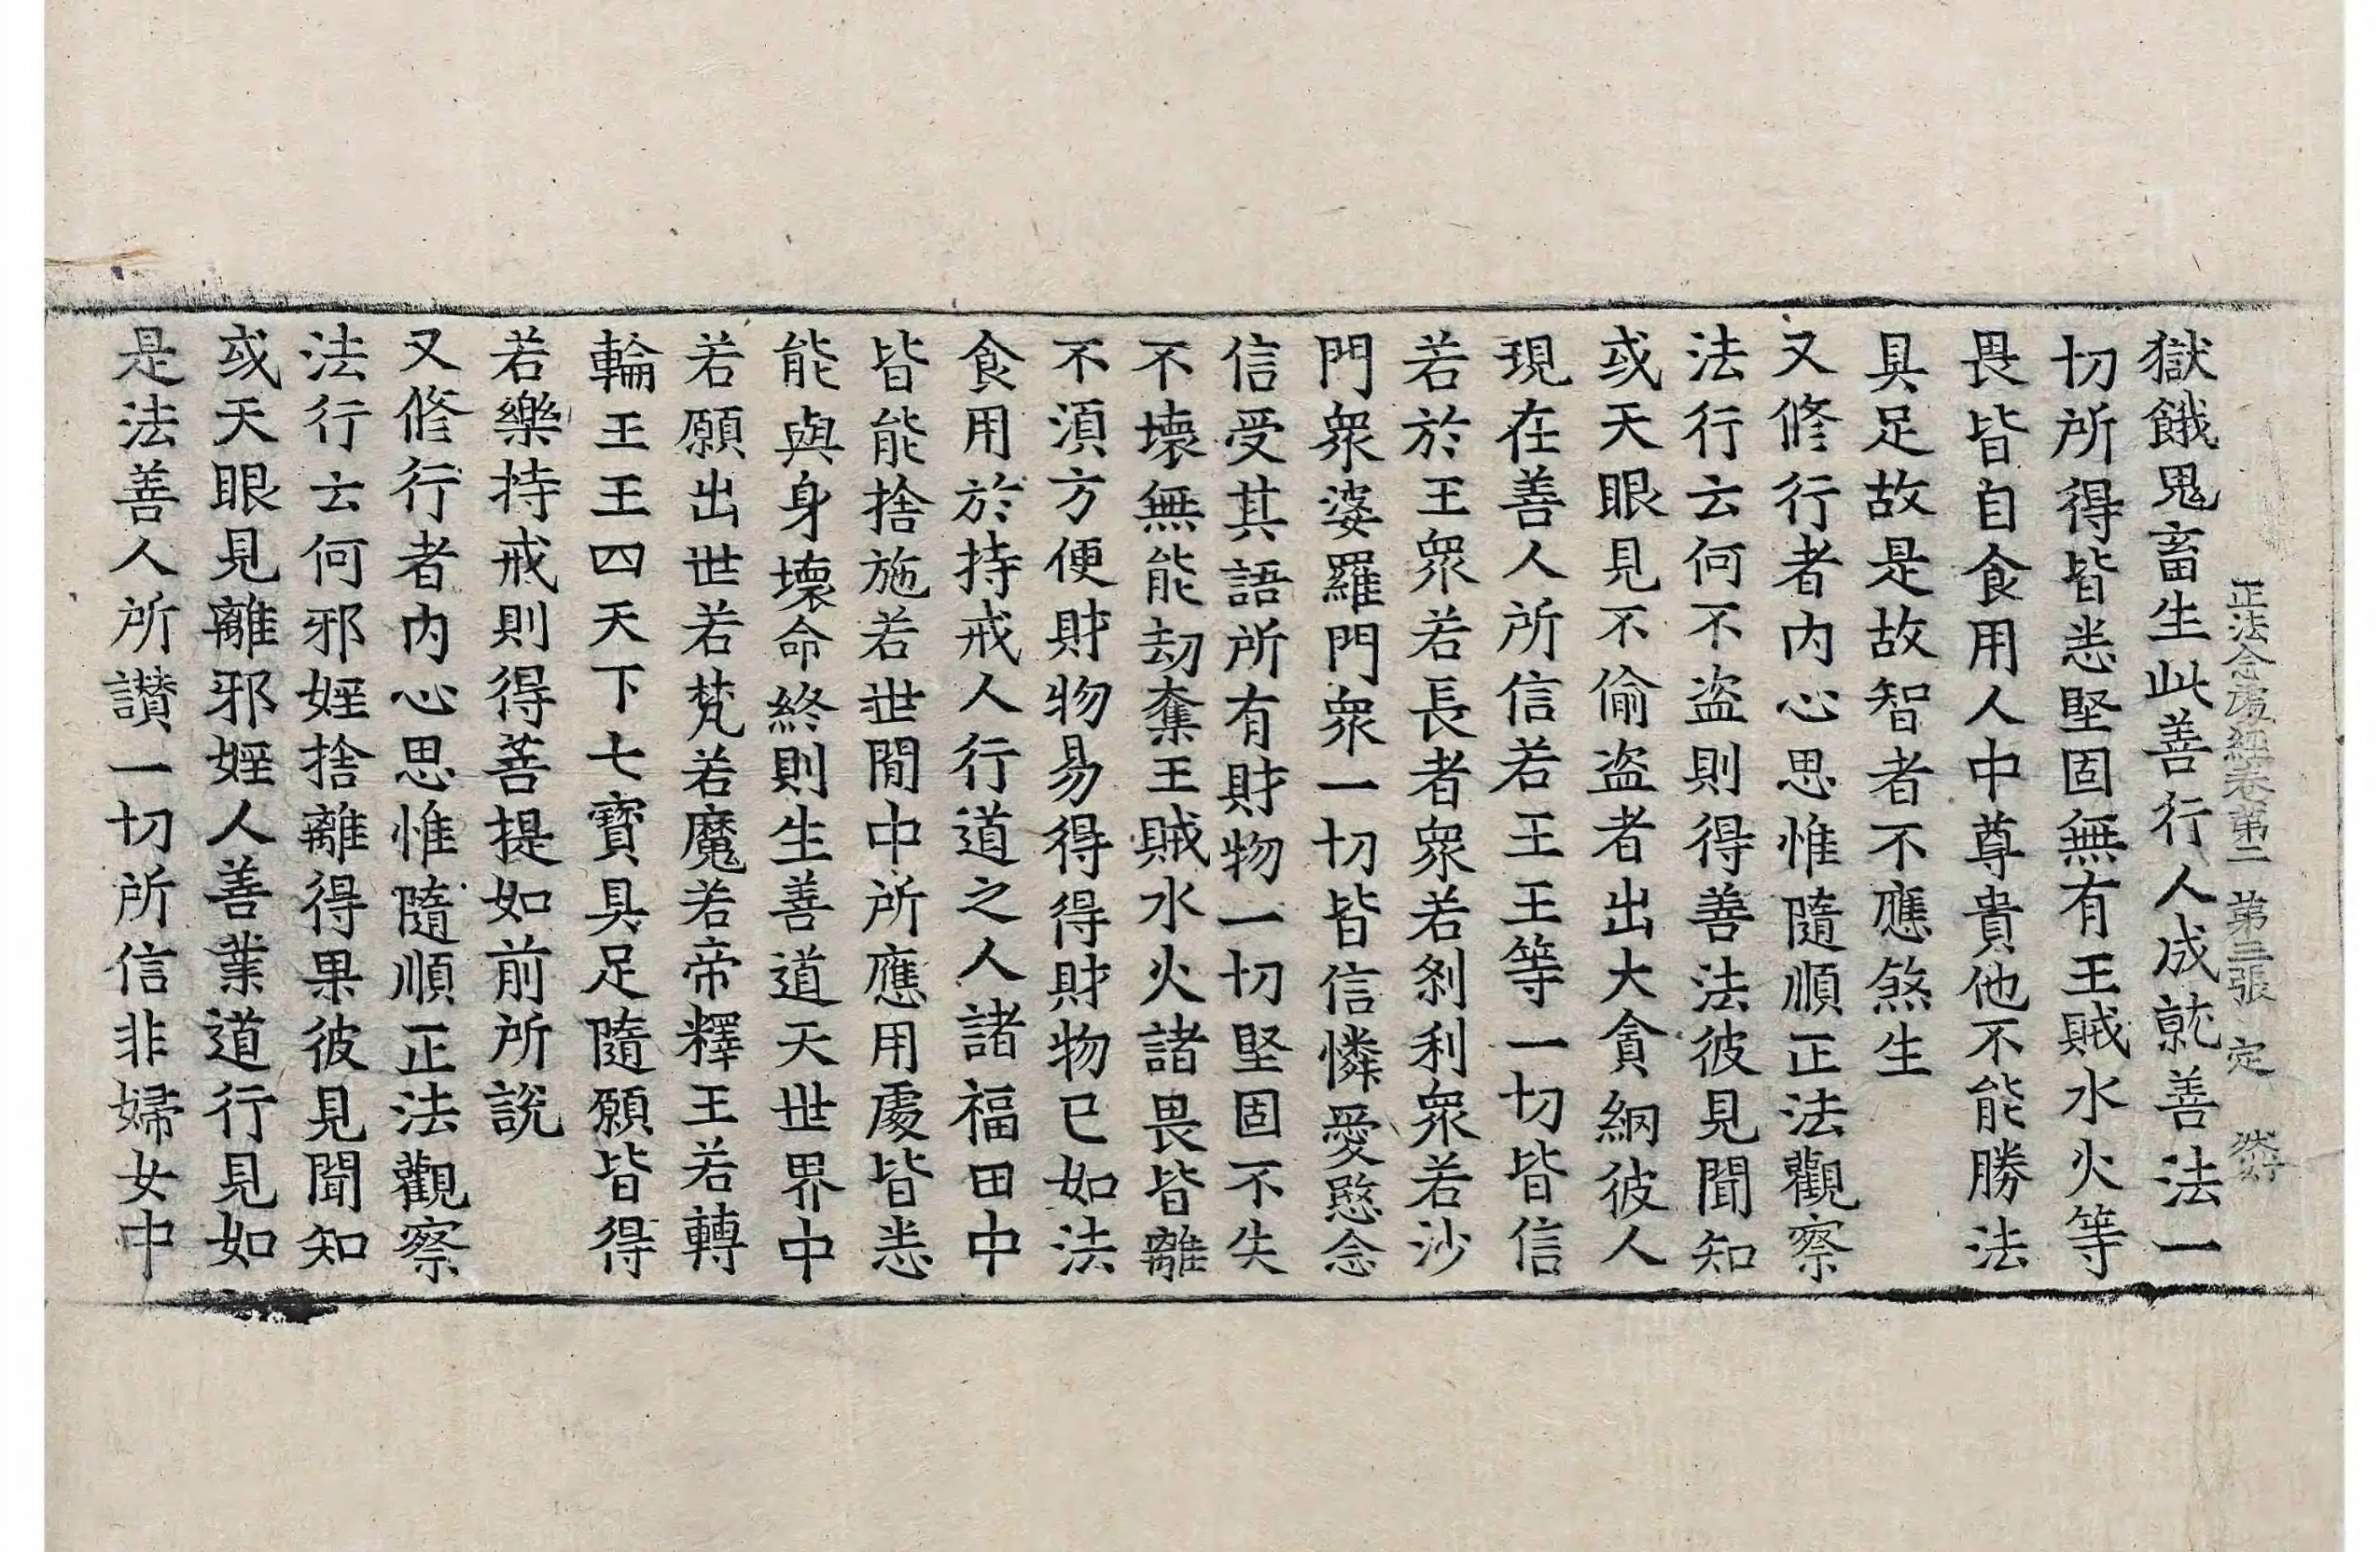 正法念處經卷第二 第三張 定
獄餓鬼畜生此善行人成就善法一
切所得皆悉堅固無有王賊水火等
畏皆自食用人中尊貴他不能勝法
具足故是故智者不應煞生
又修行者內心思惟隨順正法觀察
法行云何不盜則得善法彼見聞知
或天眼見不偷盜者出大貪網彼人
現在善人所信若王王等一切皆信
若於王眾若長者眾若剎利眾若沙
門眾婆羅門眾一切皆信憐愛愍念
信受其語所有財物一切堅固不失
不壞無能劫奪王賊水火諸畏皆離
不須方便財物易得得財物已如法
食用於持戒人行道之人諸福田中
皆能捨施若世間中所應用處皆悉
能與身壞命終則生善道天世界中
若願出世若梵若魔若帝釋王若轉
輪王王四天下七寶具足隨願皆得
若樂持戒則得菩提如前所說
又修行者內心思惟隨順正法觀察
法行云何邪婬捨離得果彼見聞知
或天眼見離邪婬人善業道行見如
是法善人所讚一切所信非婦女中